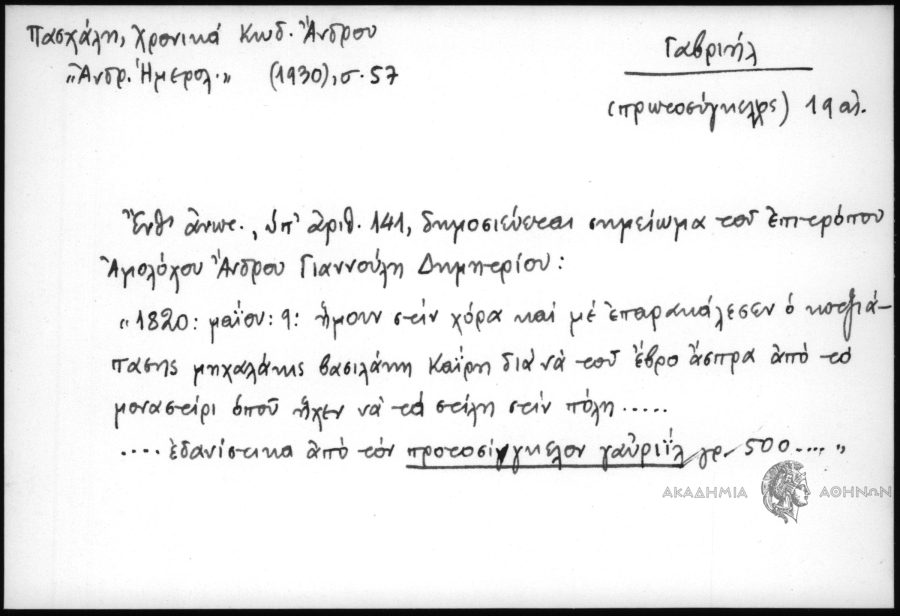 Πασχάλη, Χρονικά Κωδ. Ἄνδρου
"Ἀνδρ. Ἡμερολ." (1930), σ. 57
Γαβριήλ
(πρωτοσύγκελλος) 19 αἰ.
Ἔνθ' ἀνωτ., ὑπ' ἀριθ. 141, δημοσιεύεται σημείωμα τοῦ ἐπιτρόπου
Ἀμολόχου Ἄνδρου Γιαννούλη Δημητρίου:
"1820: μαΐου: 9: ἤμουν στὶν χόρα καὶ μὲ ἐπαρακάλεσεν ὁ κοτζιά-
πασης μηχαλάκης βασιλάκη Καΐρη διὰ νὰ τοῦ ἔβρο ἄσπρα ἀπὸ τὸ
μοναστείρι ὁποῦ ἤχεν νὰ τὰ στείλη στὶν πόλη .....
.... ἐδανίστικα ἀπὸ τὸν προτοσίγγκελον γαὐριῒλ γρ. 500 .... "
ΑΚΑΔΗΜΙΑ ΑΘΗΝΩΝ